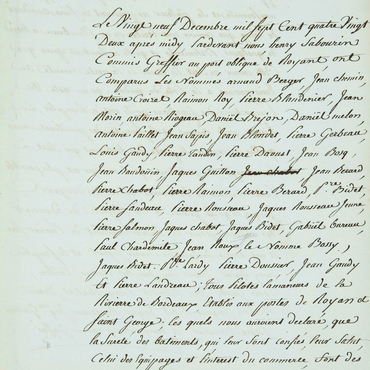 Le Vingt neuf Decembre mil sept Cent quatre Vingt
Deux après midy Pardevant nous henry Sabourin
Commis Greffier au port oblique de Royant, ont
Comparus Les Nommés arnaud Berger, Jean
antoine Raimon Roy Pierre Blandenier, Jean
Morin, antoine Daniel Brejon, Daniël melon
antoine paillet Jean Jean Blondet, Pierre Gerbeau
Louis Gaudy Pierre Pierre Daouet Jean Bosq
Jean Baudouin, Jaques Guillon Jean chabot Jean Renard
Pierre chabot, Pierre Raimon Pierre Berard Pre Bidet,
Pierre Landeau, Pierre Rousseau, Jaques Rousseau Jeune
Pierre Salmon Jaques chabot, Jaques Bidet, Gabriel
Paul Chardemite Jean Roux le Nommé Bossy,
Jaques Bidet. Pre Lardy Pierre Doussier, Jean Gaudy
Et Pierre Landreau; Tous Pilotes lamaneurs de la
Rivierre de Bordeaux Etablis aux postes de Royan et
Saint George, les quels nous auroient declaré, que
la Sureté des Batiments, qui leur sont confiés, leur Salut,
Celui des Equipages et l'interest du commerce, sont des